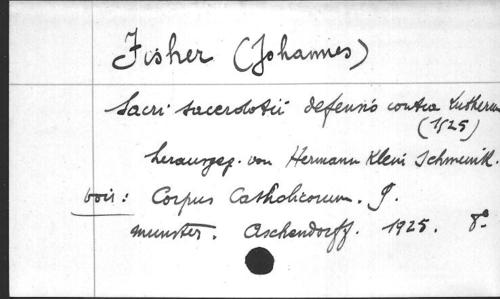 Fisher (Johannes)
Sacri sacerdotii defensio contra Lutherum
(1525)
herausgeg. von Hermann Klein Schmeink.
voir: Corpus Catholicorum. 9.
Munster. Aschendorff. 1925. 8°